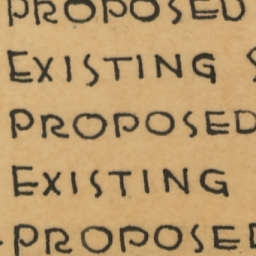 PROPOSED
EXISTING S
PROPOSED
EXISTING
PROPOSED